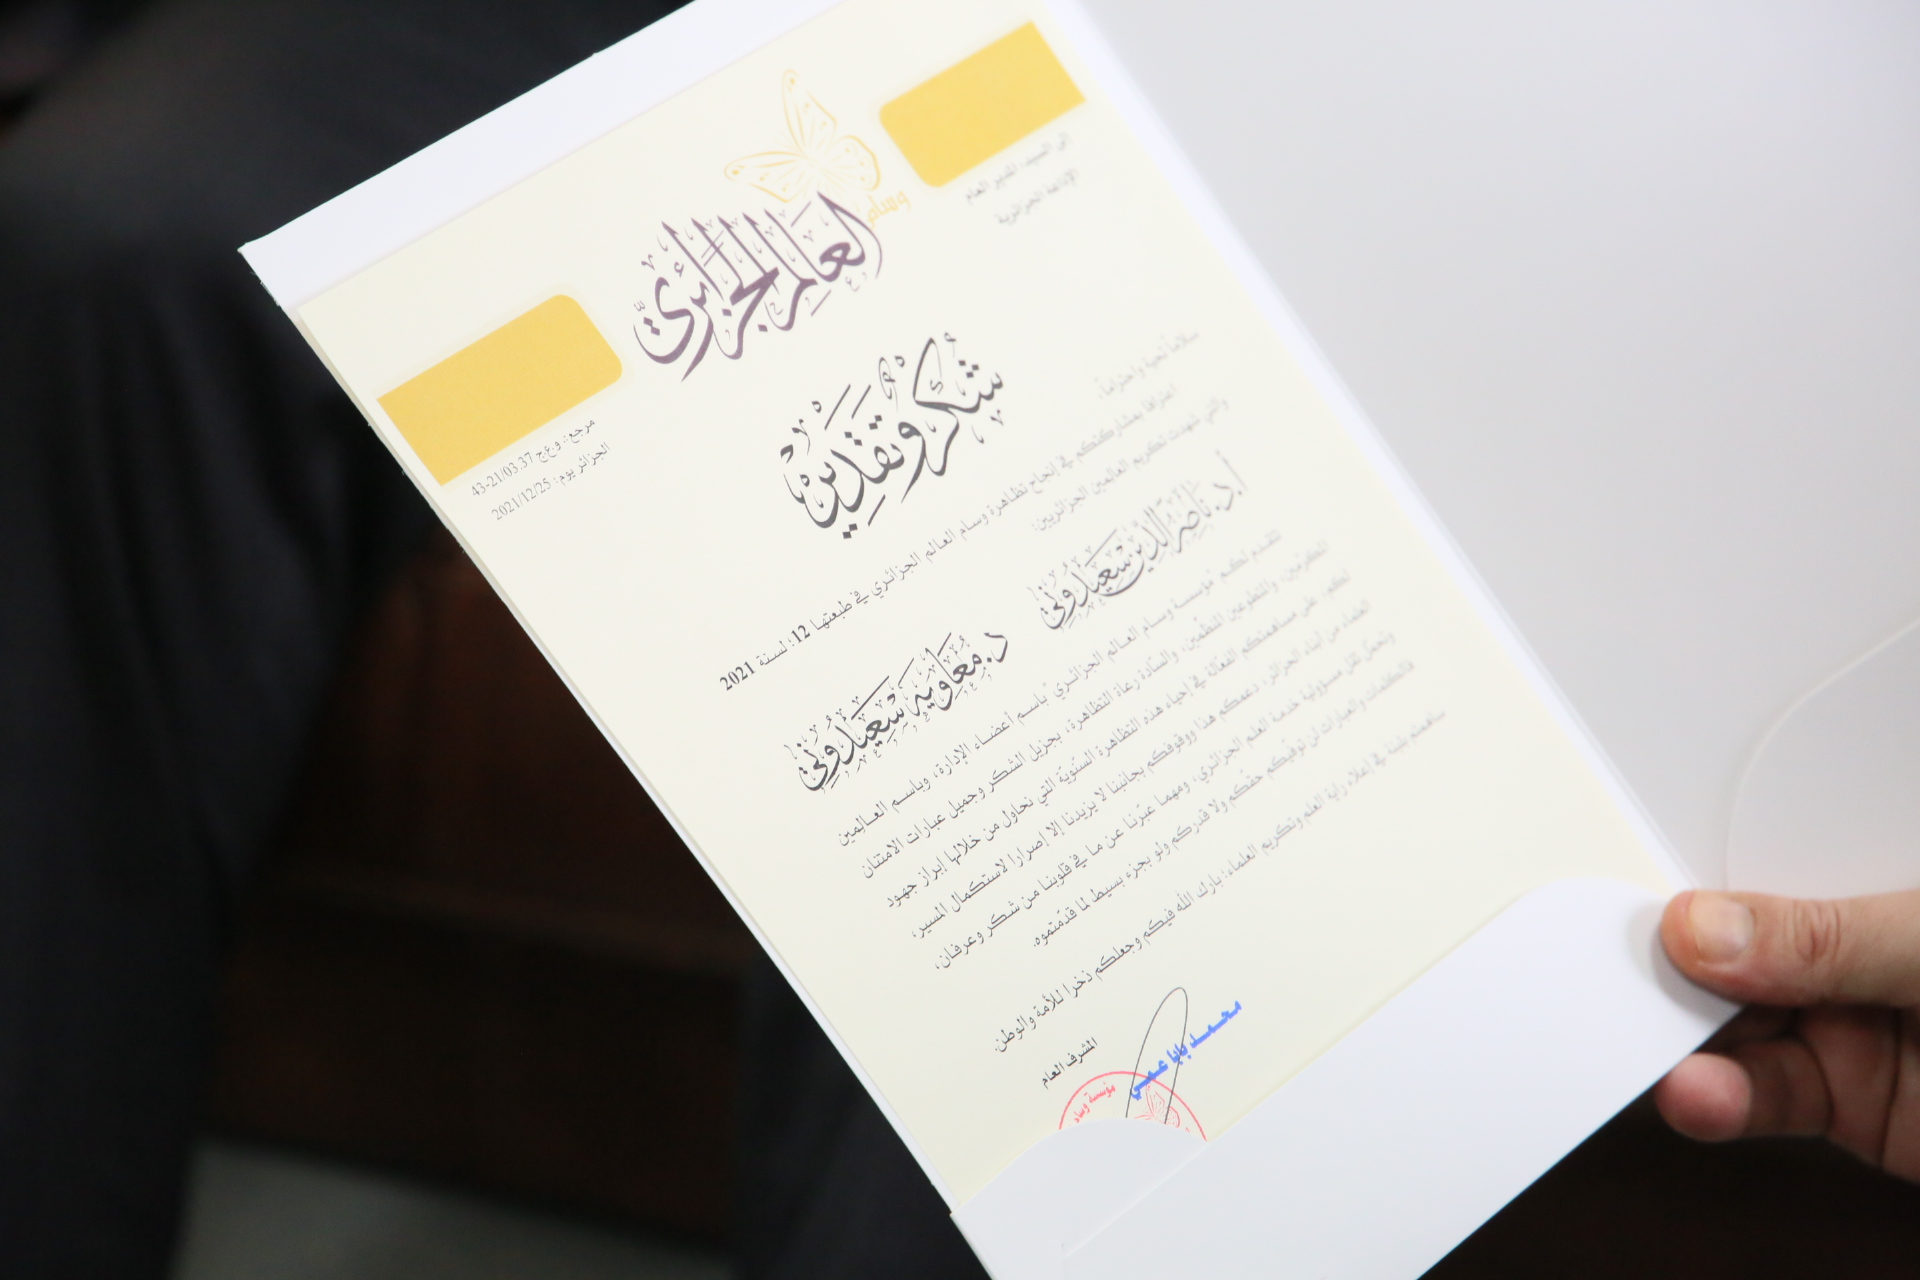 وسام
العالم الجزائري
إلى السيد: المدير العام
الإذاعة الجزائرية
مرجع: و.ع.ج 43-21/03.37
الجزائر يوم: 2021/12/25
شكر وتقدير
سلاماً تحية واحتراماً،
اعترافا بمشاركتكم في إنجاح تظاهرة وسام العالم الجزائري في طبعتها 12؛ لسنة 2021
والتي شهدت تكريم العالمين الجزائريين:
أ.د. ناصر الدين سعيدوني
د. معاوية سعيدوني
تتقدم لكم مؤسسة وسام العالم الجزائري باسم أعضاء الإدارة، وباسم العالمين
المكرمين، والمتطوعين المنظمين، والسادة رعاة التظاهرة، بجزيل الشكر وجميل عبارات الامتنان
لكم، على مساهمتكم الفعالة في إحياء هذه التظاهرة السنوية التي نحاول من خلالها إبراز جهود
العلماء من أبناء الجزائر، دعمكم هذا ووقوفكم بجانبنا لا يزيدنا إلا إصرارا لاستكمال المسير،
وتحمل ثقل مسؤولية خدمة العلم الجزائري، ومهما عبّرنا عن ما في قلوبنا من شكر وعرفان،
فالكلمات والعبارات لن توفيكم حقكم ولا قدركم ولو بجزء بسيط لما قدّمتموه.
ساهمتم بلبنة في إعلاء راية العلم وتكريم العلماء؛ بارك الله فيكم وجعلكم ذخرا للأمة والوطن.
المشرف العام
محمد بابا عمي
مؤسسة وسام